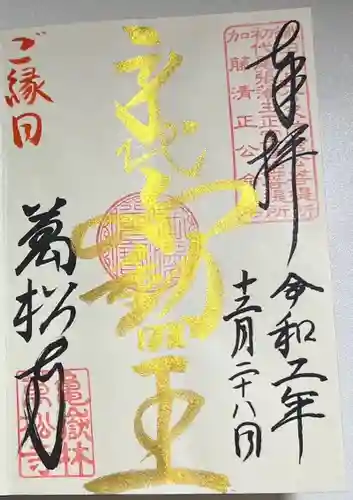 奉拝
令和二年
十二月二十八日
身代不動明王
ご縁日
萬松寺
加藤清正公
亀嶽林
萬松寺